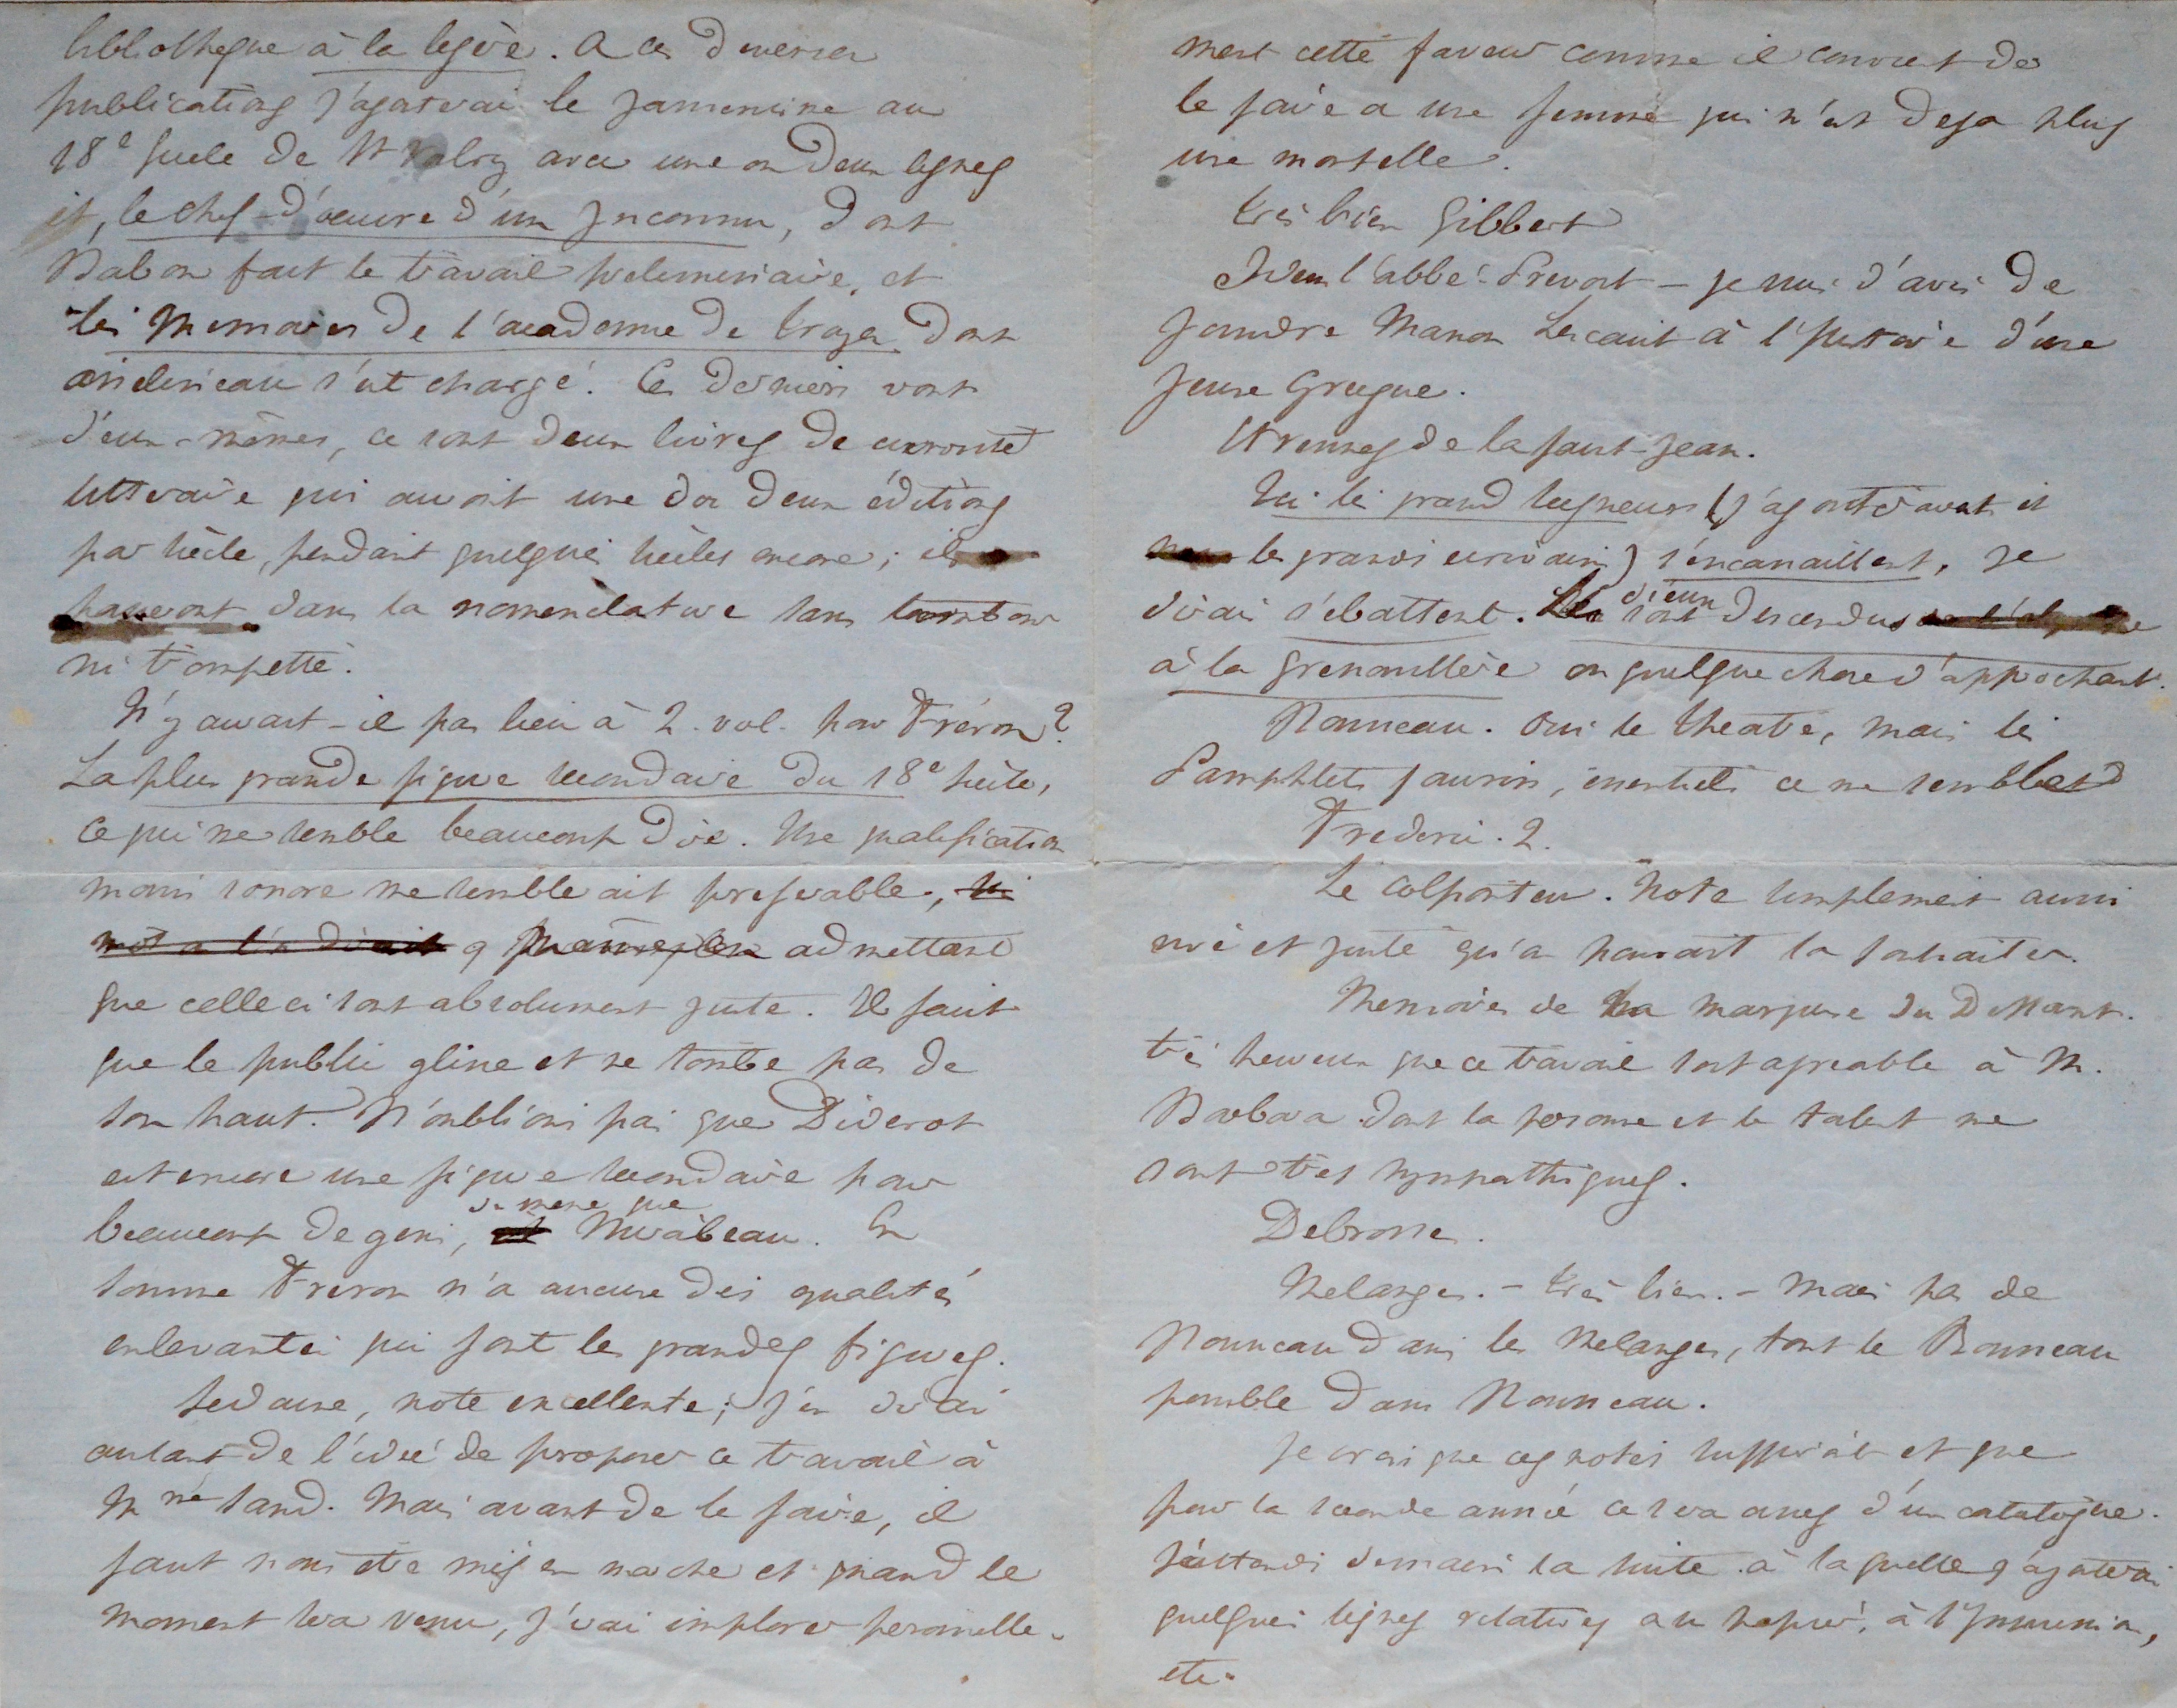 bibliotheque à la legère. A ces diverses
publications j'ajouterai le Jansenisme au
18e siecle de avec une ou deux lignes
et, le chef-d'œuvre d'un Inconnu, dont
Babou fait le travail preliminaire, et
les Memoires de l'academie de troyes dont
s'est chargé. Ces derniers vont
d'eux-mêmes, ce sont deux livres de curiosité
litteraire qui auront une ou deux éditions
par siècle, pendant quelques siècles encore; ils
passeront dans la nomenclature sans tambour
ni trompette.
N'y aurait-il pas lieu à 2. vol. pour Fréron?
La plus grande figure secondaire du 18e siècle,
ce qui me semble beaucoup dire. Une qualification
moins sonore me semblerait preferable,
admettant
que celle ci soit absolument juste. Il faut
que le public glisse et ne tombe pas de
son haut. N'oublions pas que Diderot
est encore une figure secondaire pour
beaucoup de gens, de meme que Mirabeau. En
somme Freron n'a aucune des qualités
enlevantes qui font les grandes figures.
Sedaine, note excellente; j'en dirai
autant de l'idée de proposer ce travail à
Mme Sand. Mais avant de le faire, il
faut nous etre mis en marche et quand le
moment sera venu, j'irai implorer personelle-
ment cette faveur comme il convient de
le faire a une femme qui n'est deja plus
une mortelle.
très bien Gilbert
Idem l'abbé Prevost – je suis d'avis de
joindre Manon Lescaut à l'histoire d'une
jeune Grecque.
Etrennes de la Saint-Jean.
Ici les grand seigneurs (j'ajouterais et
les grands ecrivains) s'encanaillent, je
dirai s'ebattent. Les dieux sont descendus
à la grenouillère ou quelque chose d'approchant.
Rousseau. Oui le theatre, mais les
Pamphlets Saurin, essentiels ce me semble
Frederic. 2.
Le Colporteur. Note simplement aussi
vive et juste qu'on pouvait la souhaiter.
Memoires de la marquise Du Deffant.
très heureux que ce travail soit agreable à M.
Barbara dont la personne et le talent me
sont très sympathiques.
Debrosse.
Melanges. – très bien. – Mais pas de
Rousseau dans les Melanges, tout le Rousseau
possible dans Rousseau.
Je crois que ces notes suffiront et que
pour la seconde année ce sera assez d'un catalogue.
J'attends demain la suite à laquelle j'ajouterai
quelques lignes relatives au papier, à l'Impression,
etc.